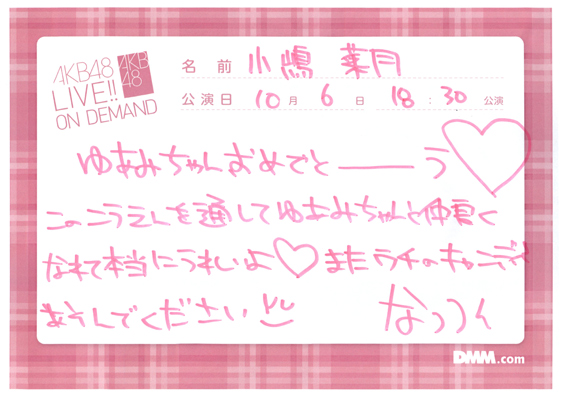 AKB48
LIVE!!
ON DEMAND
AKB
48
名前 小嶋 菜月
公演日 10月 6日 18:30 公演
ゆあみちゃんおめでとーう♡
このこうえんを通してゆあみちゃんと仲良く
なれて本当にうれしいよ♡またウチのキャンディ
あそんでください
なっつん
DMM.com